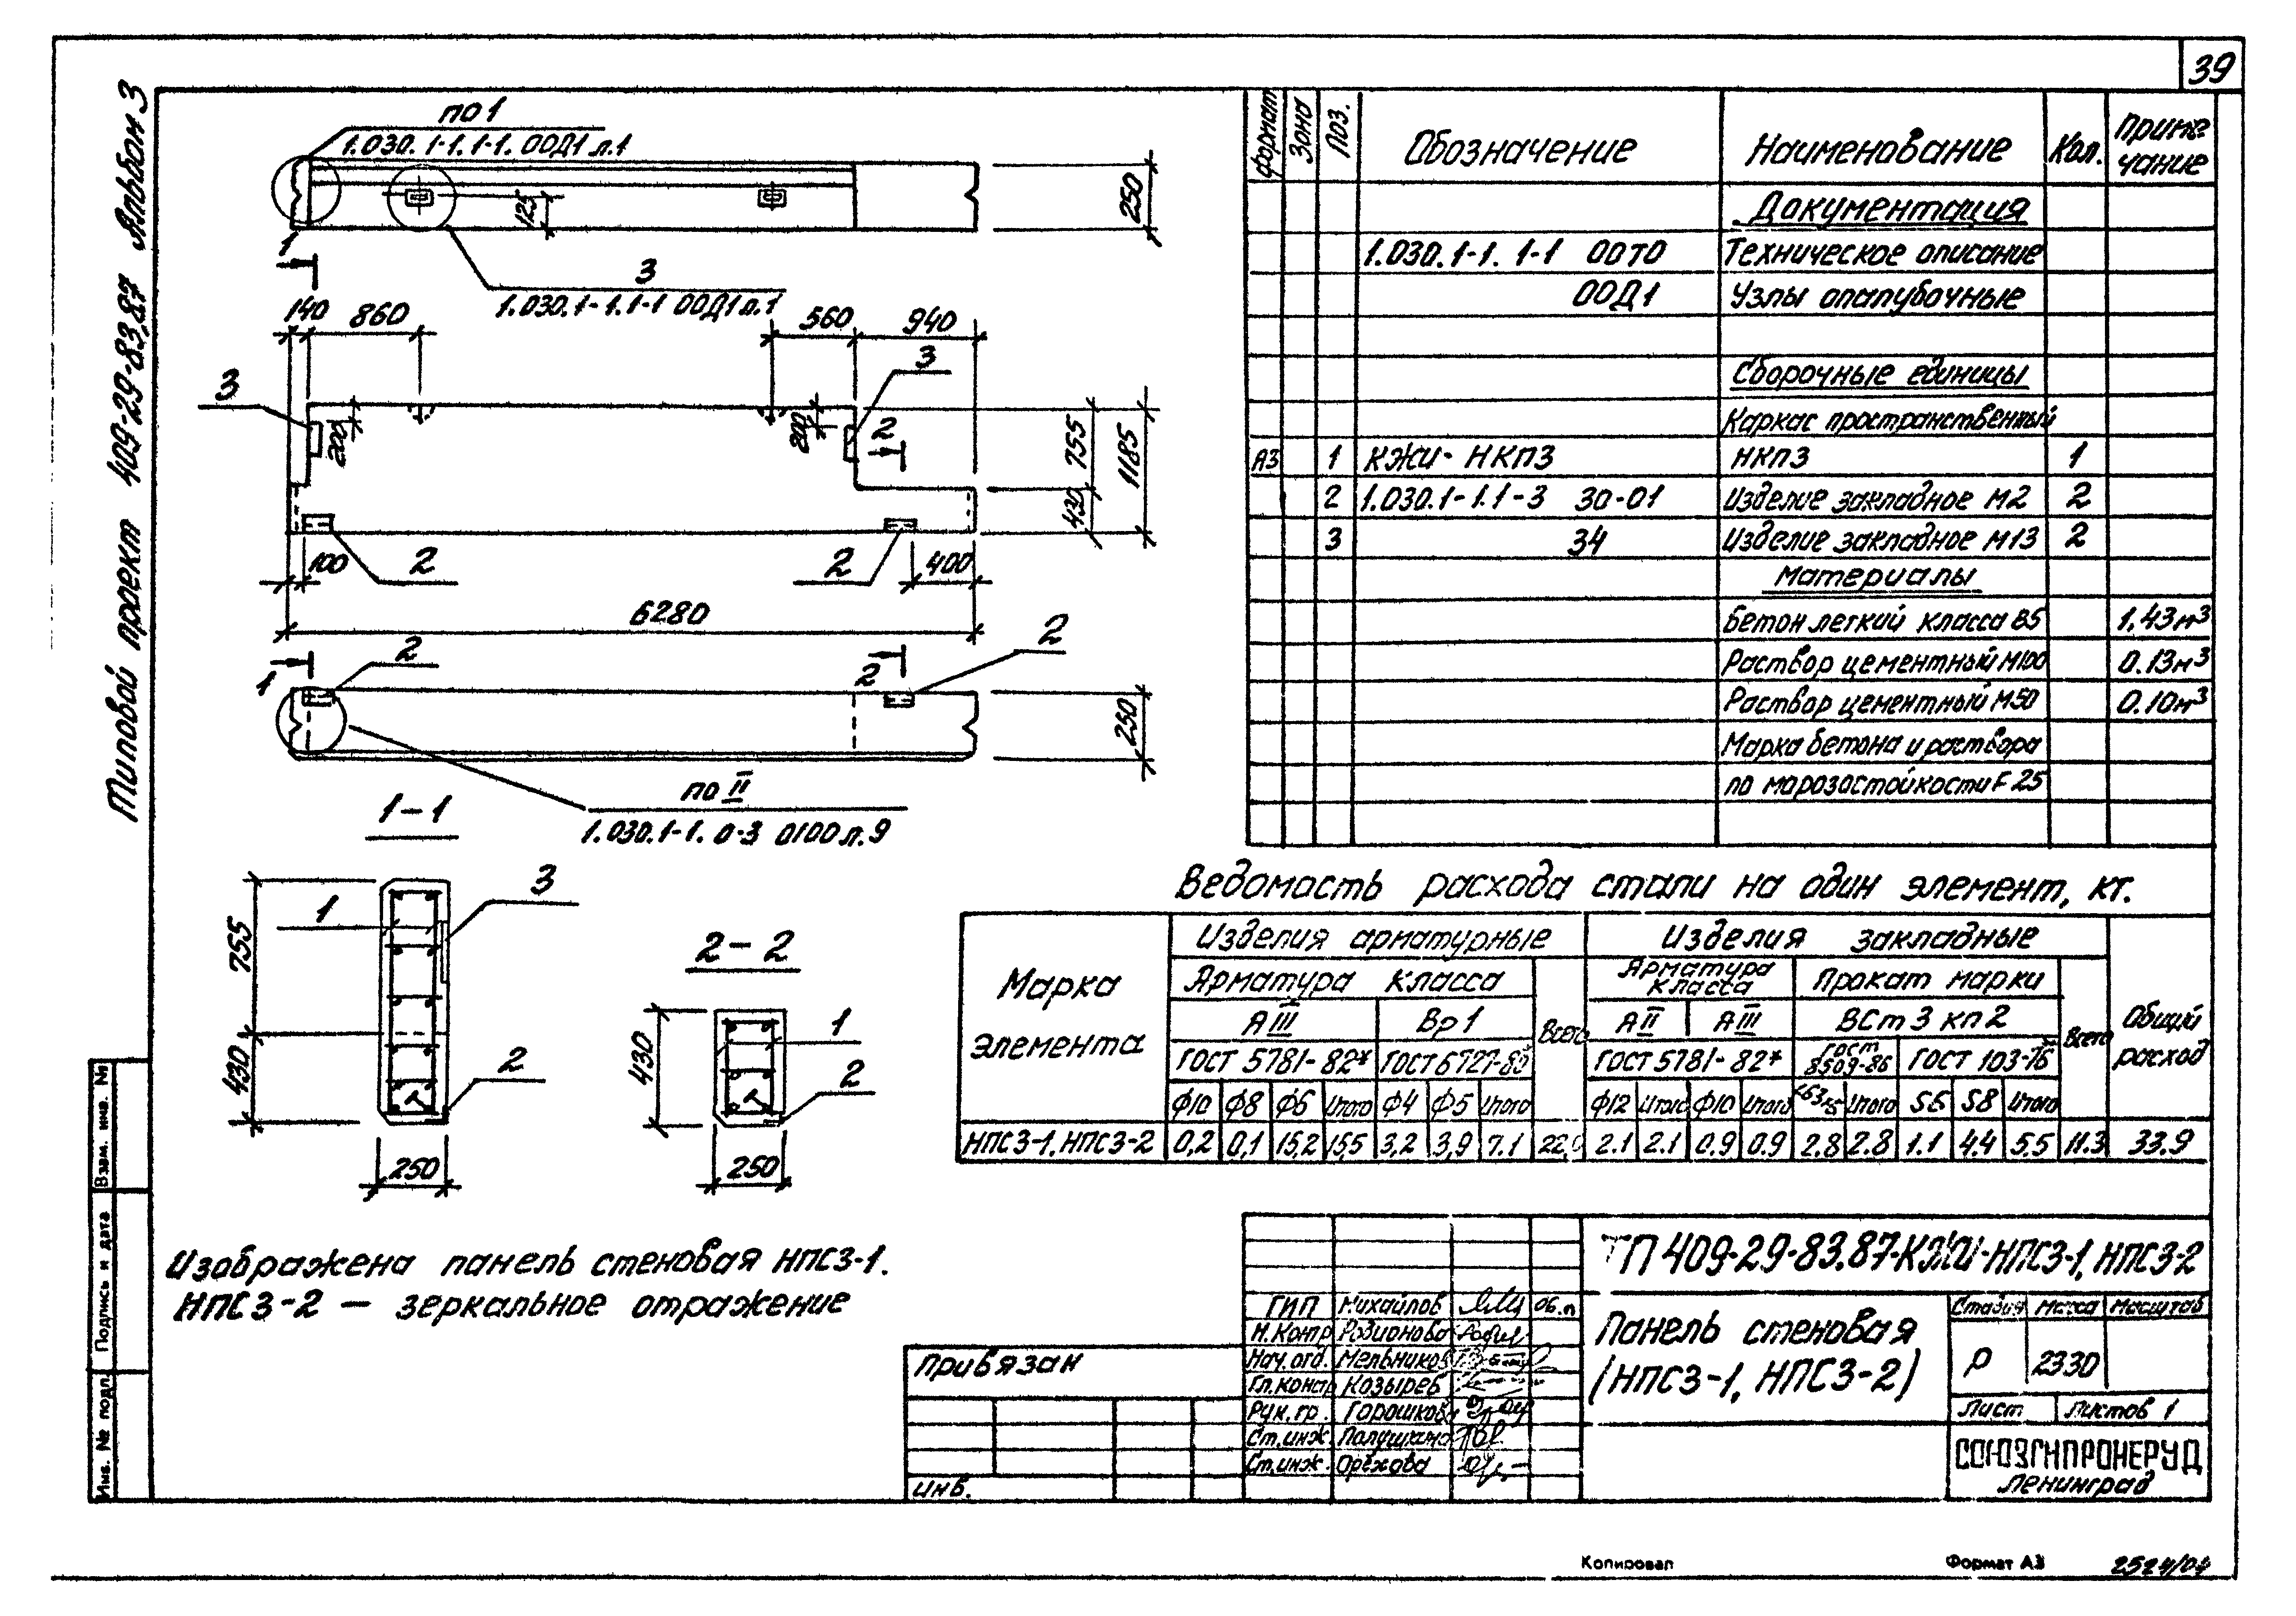 39
Типовой проект 409-29-83.87 Альбом 3
по 1
1.030.1-1.1-1.00Д1 л.1
125
250
1
3
1.030.1-1.1-1 00Д1 л.1
140
860
560
940
3
3
200
200
2
755
1185
430
100
2
2
400
6280
2
2
1
2
250
по II
1.030.1-1.0-3 0100 л.9
1-1
1
3
755
430
2
250
2-2
1
430
2
250
Изображена панель стеновая НПС3-1.
НПС3-2 — зеркальное отражение
Формат Зона Поз. Обозначение Наименование Кол. Приме-
чание
Документация
1.030.1-1.1-1 00Т0 Техническое описание
00Д1 Узлы опалубочные
Сборочные единицы
Каркас пространственный
А3 1 КЖИ-НКП3 НКП3 1
2 1.030.1-1.1-3 30-01 Изделие закладное М2 2
3 34 Изделие закладное М13 2
Материалы
Бетон легкий класса В5 1,43м³
Раствор цементный М100 0.13м³
Раствор цементный М50 0.10м³
Марка бетона и раствора
по морозостойкости F25
Ведомость расхода стали на один элемент, кг.
Марка элемента
Изделия арматурные Изделия закладные Общий расход
Арматура класса Всего Арматура класса Прокат марки Всего
АIII Вр1 АII АIII ВСт3кп2
ГОСТ 5781-82* ГОСТ 6727-80 ГОСТ 5781-82* ГОСТ 8509-86 ГОСТ 103-76
Ф10 Ф8 Ф6 Итого Ф4 Ф5 Итого Ф12 Итого Ф10 Итого Итого S6 S8 Итого
НПС3-1, НПС3-2 0,2 0,1 15,2 15,5 3,2 3,9 7.1 2.1 2.1 0.9 0.9 2.8 2.8 1.1 4.4 5.5 11.3 33.9
ТП 409-29-83.87-КЖИ-НПС3-1, НПС3-2
ГИП Михайлов
Н.Контр Родионова
Нач.отд. Мельников
Гл.констр Козырев
Рук.гр. Горошкова
Ст.инж
Ст.инж. Орехова
Панель стеновая
(НПС3-1, НПС3-2)
Стадия Масса Масштаб
Р 2330
Лист Листов 1
СОЮЗГИПРОНЕРУД
Ленинград
Привязан
инв.
Взам. инв. №
Подпись и дата
Инв. № подл.
Копировал Формат А3